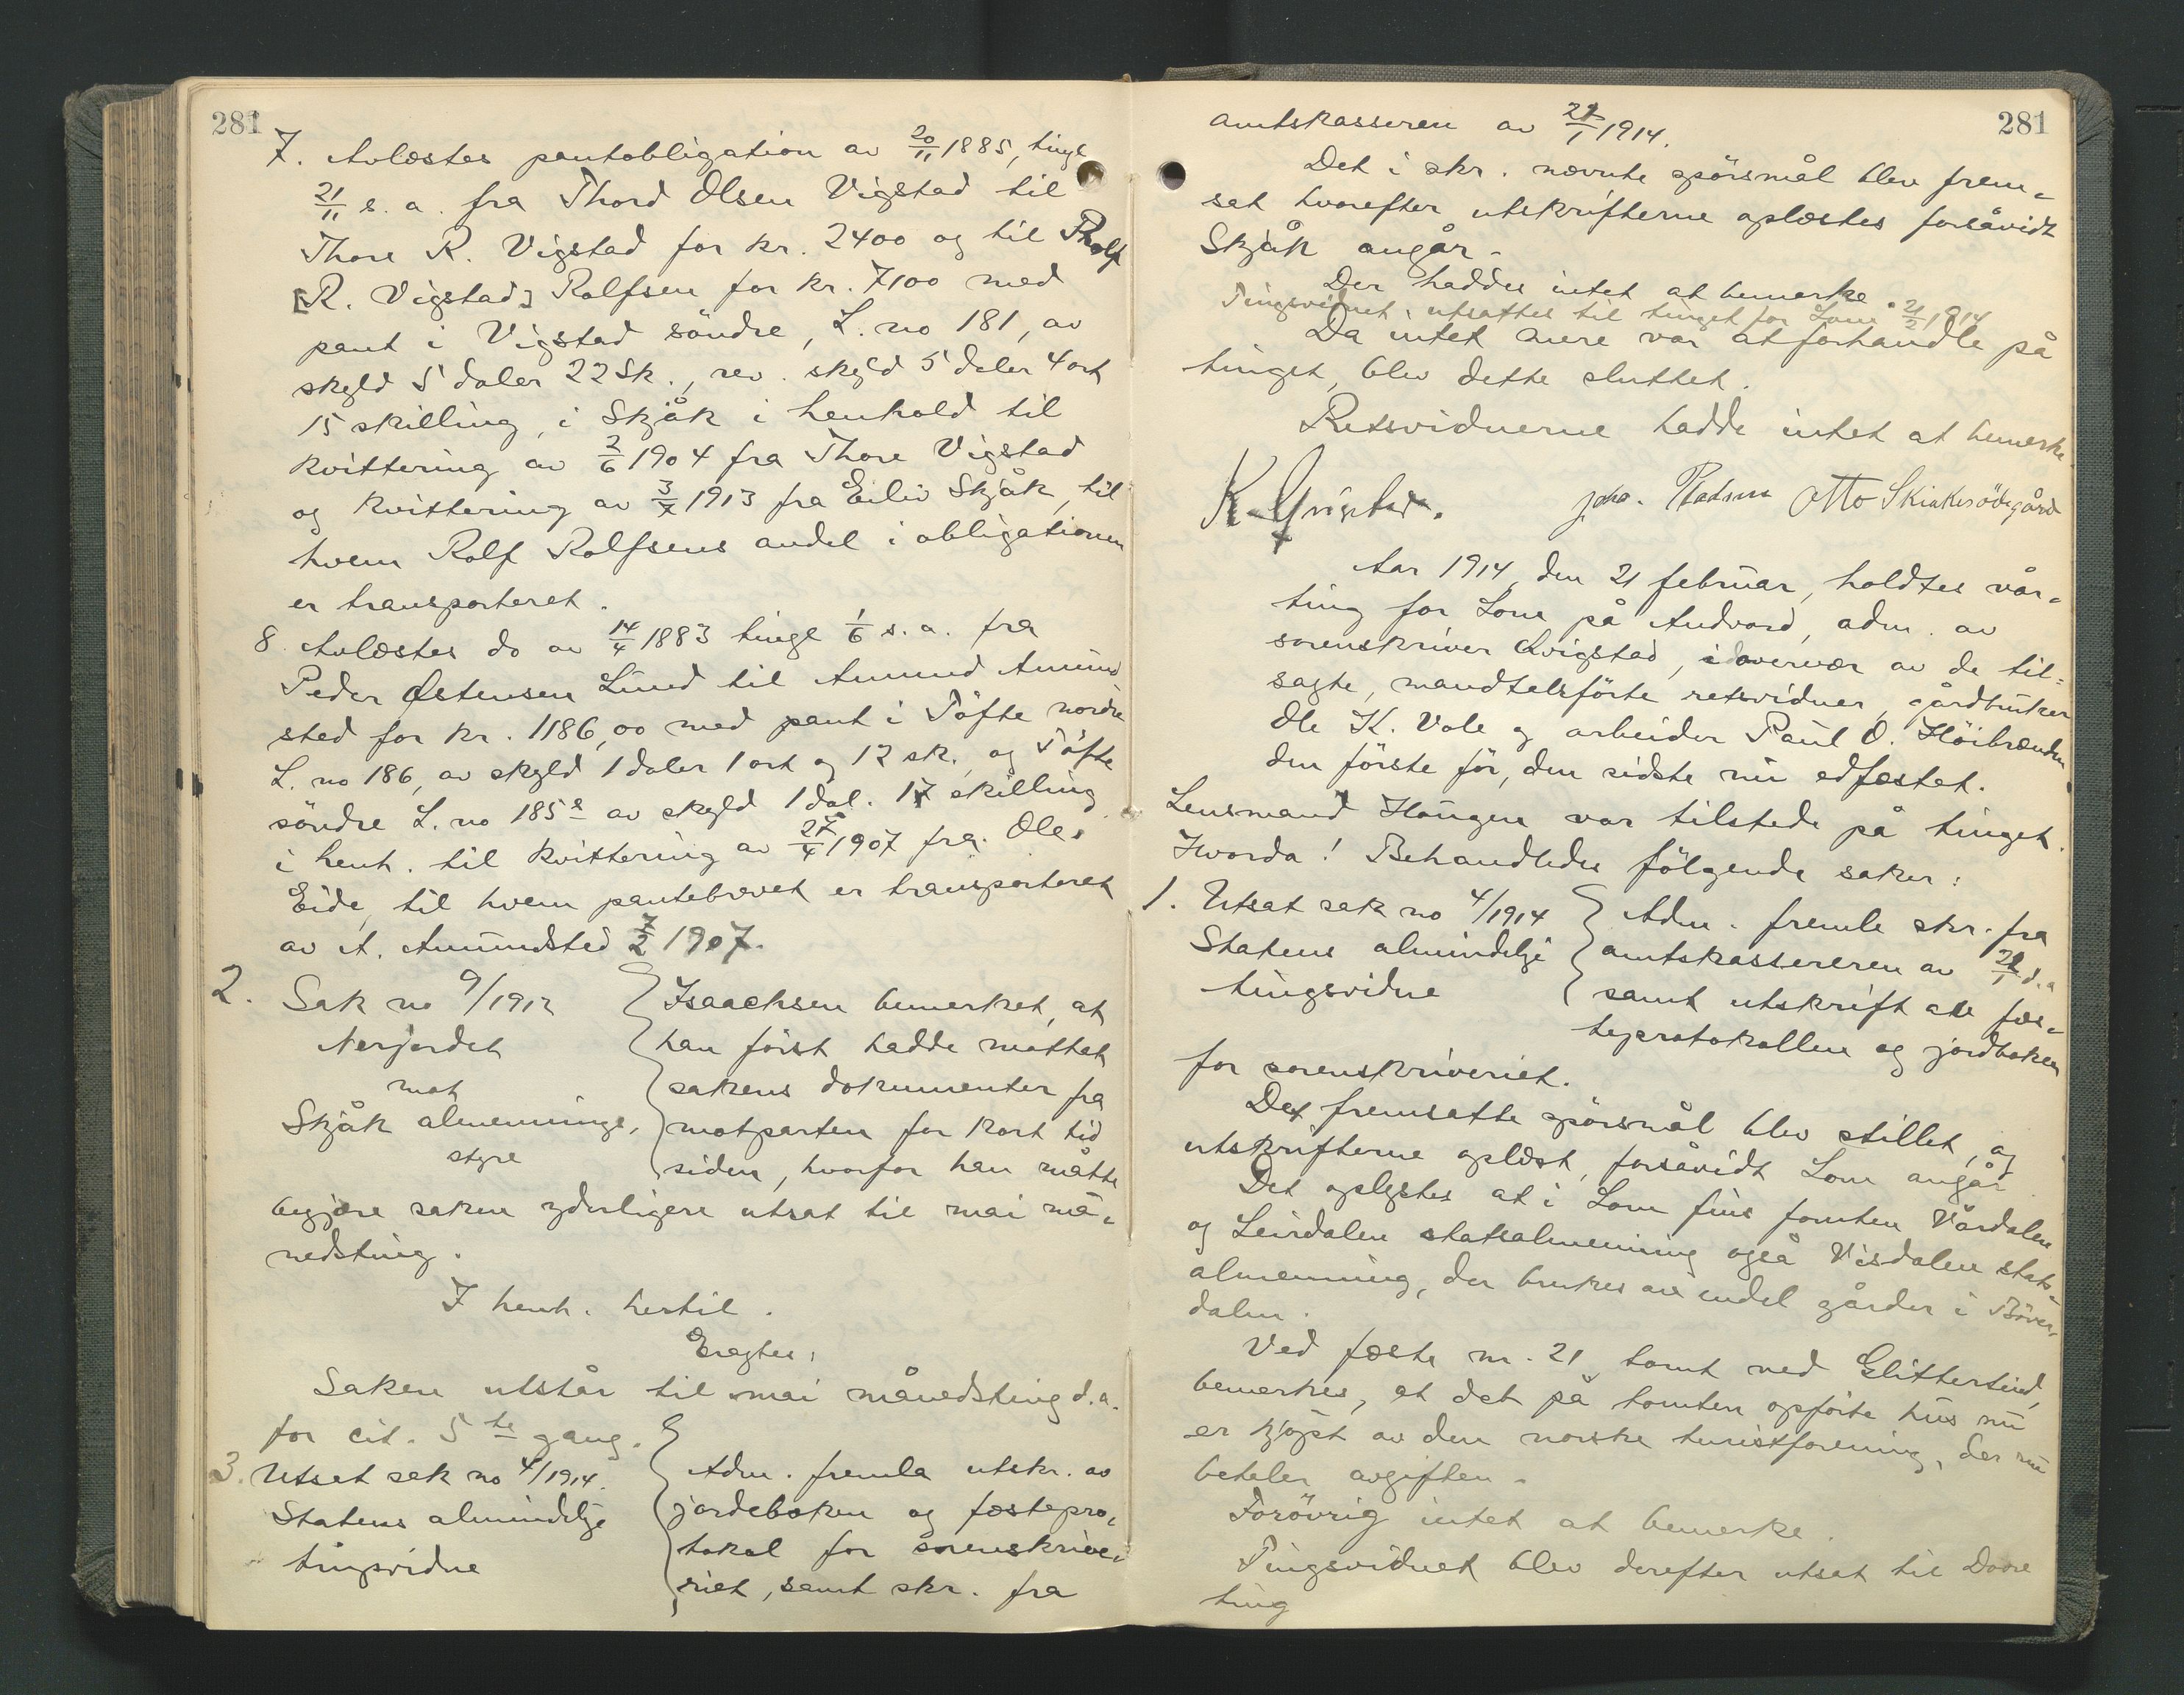 281
7. Avlæstes pantobligation av 20/11 1885, tingl
21/11 s. a. fra Thord Olsen Vigstad til
Thore R. Vigstad for kr. 2400 og til Rolf
[R. Vigstad] Rolfsen for kr. 7100 med
pant i Vigstad söndre, L. no 181, av
skyld 5 daler 22 Sk., rev. skyld 5 daler 4 ort
15 skilling, i Skjåk i henhold til
kvittering av 2/6 1904 fra Thore Vigstad
og kvittering av 3/7 1913 fra Eiliv Skjåk, til
hvem Rolf Rolfsens andel i obligationen
er transporteret.
8. Avlæstes do av 14/4 1883 tingl 1/6 s. a. fra
Peder Østensen Lund til Amund Amund
sted for kr. 1186,00 med pant i Töfte nordre
L. no 186, av skyld 1 daler 1 ort og 12 sk., og Töfte
söndre L. no 185 av skyld 1 dal. 17 skilling
i henh. til kvittering av 27/4 1907 fra Ole
Eide, til hvem pantebrevet er transporteret
av A. Amundsted 7/2 1907.
2. Sak no 9/1912
Nerjordet
mot
Skjåk almennings,
styre
Isaachsen bemerket, at
han först hadde mottat
sakens dokumenter fra
motparten for kort tid
siden, hvorfor han måtte
begjære saken yderligere utsat til mai må,
nedsting.
I henh. hertil.
Eragtes:
Saken utstår til mai månedsting d.a.
for cit. 5te gang.
3. Utsat sak no 4/1914.
Statens almindelige
tingsvidne
Adm. fremla utskr. av
jordeboken og fæstepro,
tokol for sorenskrive,
riet, samt skr. fra
281
amtskasseren av 21/1 1914.
Det i skr. nævnte spörsmål blev frem,
sat hvorefter utskrifterne oplæstes forsåvidt
Skjåk angår.
Der haddes intet at bemerke.
Tingsvidnet utsattes til tinget for Lom 21/2 1914
Da intet mere var at forhandle på
tinget, blev dette sluttet.
Retsvidnerne hadde intet at bemerke.
K. Qvigstad. Otto Skiakesödegård
Aar 1914, den 21 februar, holdtes vår,
ting for Lom på Andvord, adm. av
sorenskriver Qvigstad, i overvær av de til,
sagte, mandtalsförte retsvidner, gårdbruker
Ole K. Vole og arbeider Paul O. Höibrænden
den förste för, den sidste nu edfæstet.
Lensmand Haugen var tilstede på tinget.
Hvorda! Behandledes fölgende saker:
1. Utsat sak no 4/1914
Statens almindelige
tingsvidne
Adm. fremla skr. fra
amtskassereren av 21/1 d.a
samt utskrift av fæs,
teprotokollen og jordboken
for sorenskriveriet.
Det fremsatte spörsmål blev stillet, og
utskrifterne oplæst, forsåvidt Lom angår
Det oplystes at i Lom fins foruten Vårdalen
og Leirdalen statsalmenning også Visdalen stats,
almenning, der brukes av endel gårder i Böver,
dalen.
Ved fæste nr. 21, tomt ved Glittertind,
bemerkes, at det på tomten opförte hus nu
er kjöpt av den norske turistforening, der nu
betaler avgiften.
Forövrig intet at bemerke.
Tingsvidnet blev derefter utsat til Dovre
ting